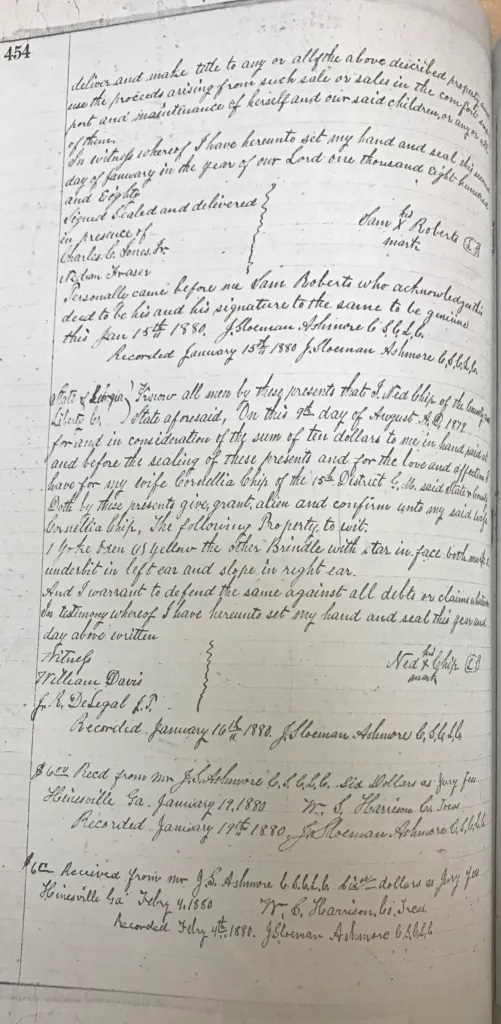 454
deliver and make title to any or all of the above described property
use the proceeds arising from such sale or sales in the comfort
port and maintenance of herself and our said children, or any or
of them.
In witness whereof I have hereunto set my hand and seal this
day of January in the year of our Lord one thousand Eight hundred
and Eighty
Signed Sealed and delivered
in presence of
Charles C. Jones. Jr.
Fraser
his
Sam X Roberts
mark
Personally came before me Sam Roberts who acknowledges this
deed to be his and his signature to the same to be genuine
this Jan 15th 1880. J Sloeman Ashmore C, S, C, L, C.
Recorded January 15th 1880 J Sloeman Ashmore C, S, C, L, C,
State of Georgia ) Know all men by these presents that I, Ned Chip of the County
Liberty Co. ) State aforesaid, On this 9th day of August A, D, 1879
for and in consideration of the sum of ten dollars to me in hand paid at
and before the sealing of these presents and for the love and affection I
have for my wife Cornellia Chip of the 15th District G. M. said State & County
Doth by these presents give, grant, alien and confirm unto my said wife
Cornellia Chip, The following Property, to wit.
1 Yoke Oxen yellow the other Brindle with star in face both
underbit in left ear and slope in right ear.
And I warrant to defend the same against all debts or claims
In testimony whereof I have hereunto set my hand and seal this year and
day above written
Witness
William Davis
J. R. DeLegal J. P.
his
Ned X Chip
mark
Recorded January 16th 1880. J Sloeman Ashmore C, S, C, L, C,
$6.00 Recd from Mr J. S. Ashmore C, S, C, L, C. Six Dollars as Jury fee
Hinesville Ga. January 12, 1880 W. S. Harrison Co. Treas
Recorded January 19th 1880, J Sloeman Ashmore C, S, C, L, C
$6.00 Received from mr J. S. Ashmore C. S. C. L. C dollars as Jury fee
Hinesville Ga Feby 4, 1880 W. C. Harrison, Co, Treas
Recorded Feby 4th, 1880. J Sloeman Ashmore C, S, C, L, C